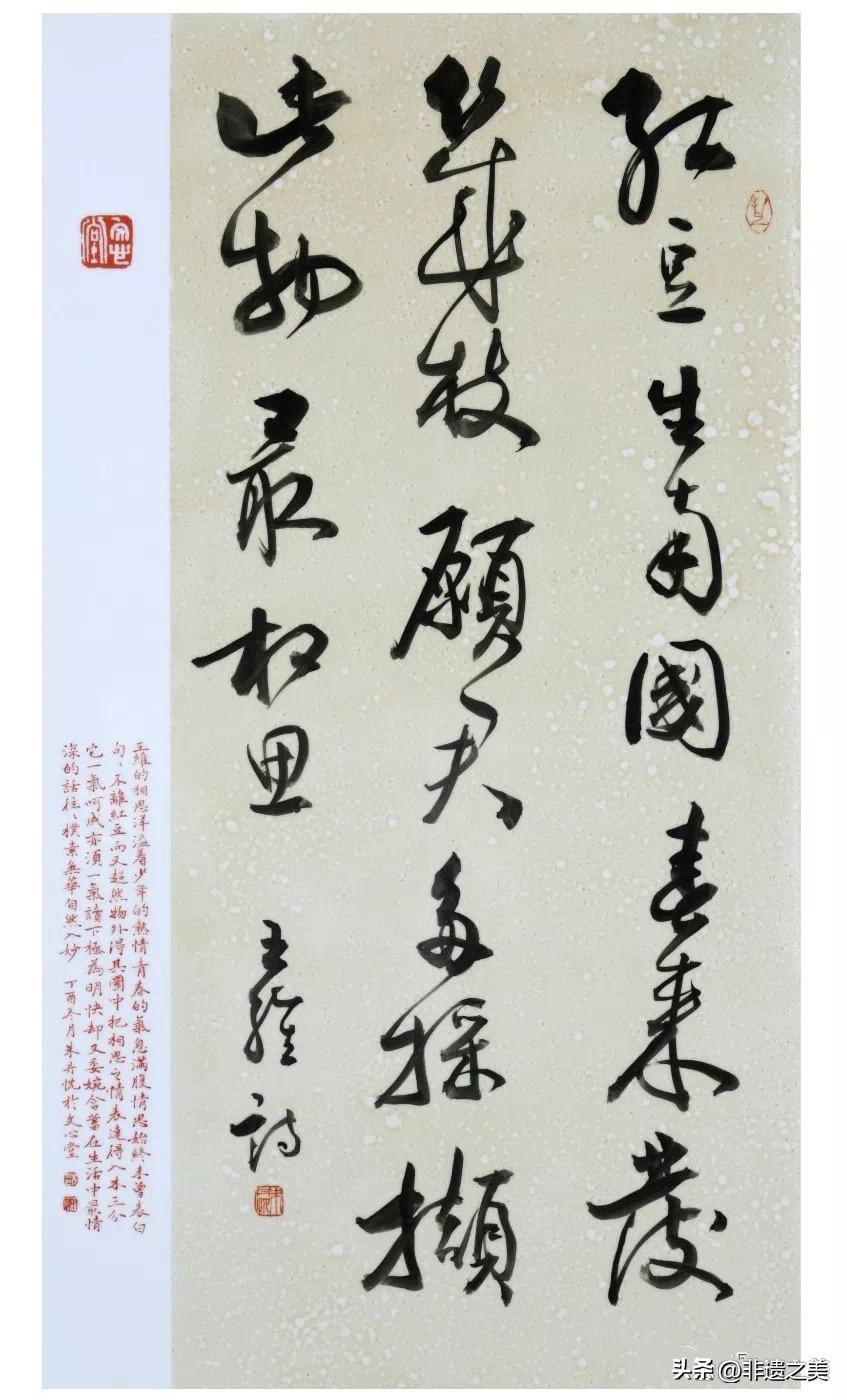 紅豆生南國春來發
幾枝願君多採擷
此物最相思 王維詩
王維的相思洋溢着少年的熱情青春的氣息滿腹情思始終未曾表白
句、不離紅豆而又超然物外得其圜中把相思之情表達得入木三分
它一氣呵成亦須一氣讀下極為明快却又委婉含蓄在生活中最情
深的話往、樸素無華自然入妙 丁酉冬月朱丹忱於文心堂
头条 @非遗之美